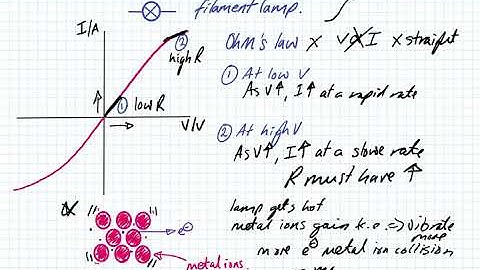 filament lamp.
I/A
② high R
① low R
V/V
Ohm's law × V∝I × straight
① At low V
As V↑, I↑ at a rapid rate
② At high V
As V↑, I↑ at a slowe rate
R must have ↑
lamp gets hot
metal ions gain k.e ⇒ vibrate more
more e⁻ metal ion collision
e⁻
metal ions.